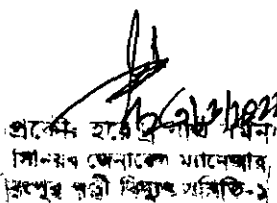 প্রকৌঃ হরেন্দ্র নাথ বর্মন
সিনিয়র জেনারেল ম্যানেজার
রংপুর পল্লী বিদ্যুৎ সমিতি-১